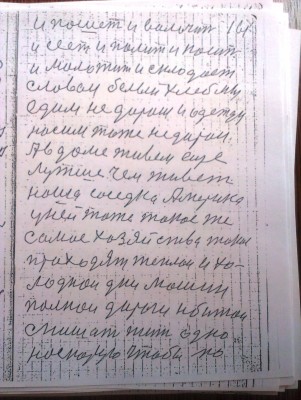 и пошет и валочит 141
и сеет и полит и косит
и молотит и склодает
словом белый хлеб мы
едим не даром и одежду
носим тоже недаром.
А в доме живем еще
лутше чем живет
наша соседка Америка
у ней тоже такое же
самое хозяйства також
проходят теплои и хо-
лодной дни машин
полной дороги
спишат